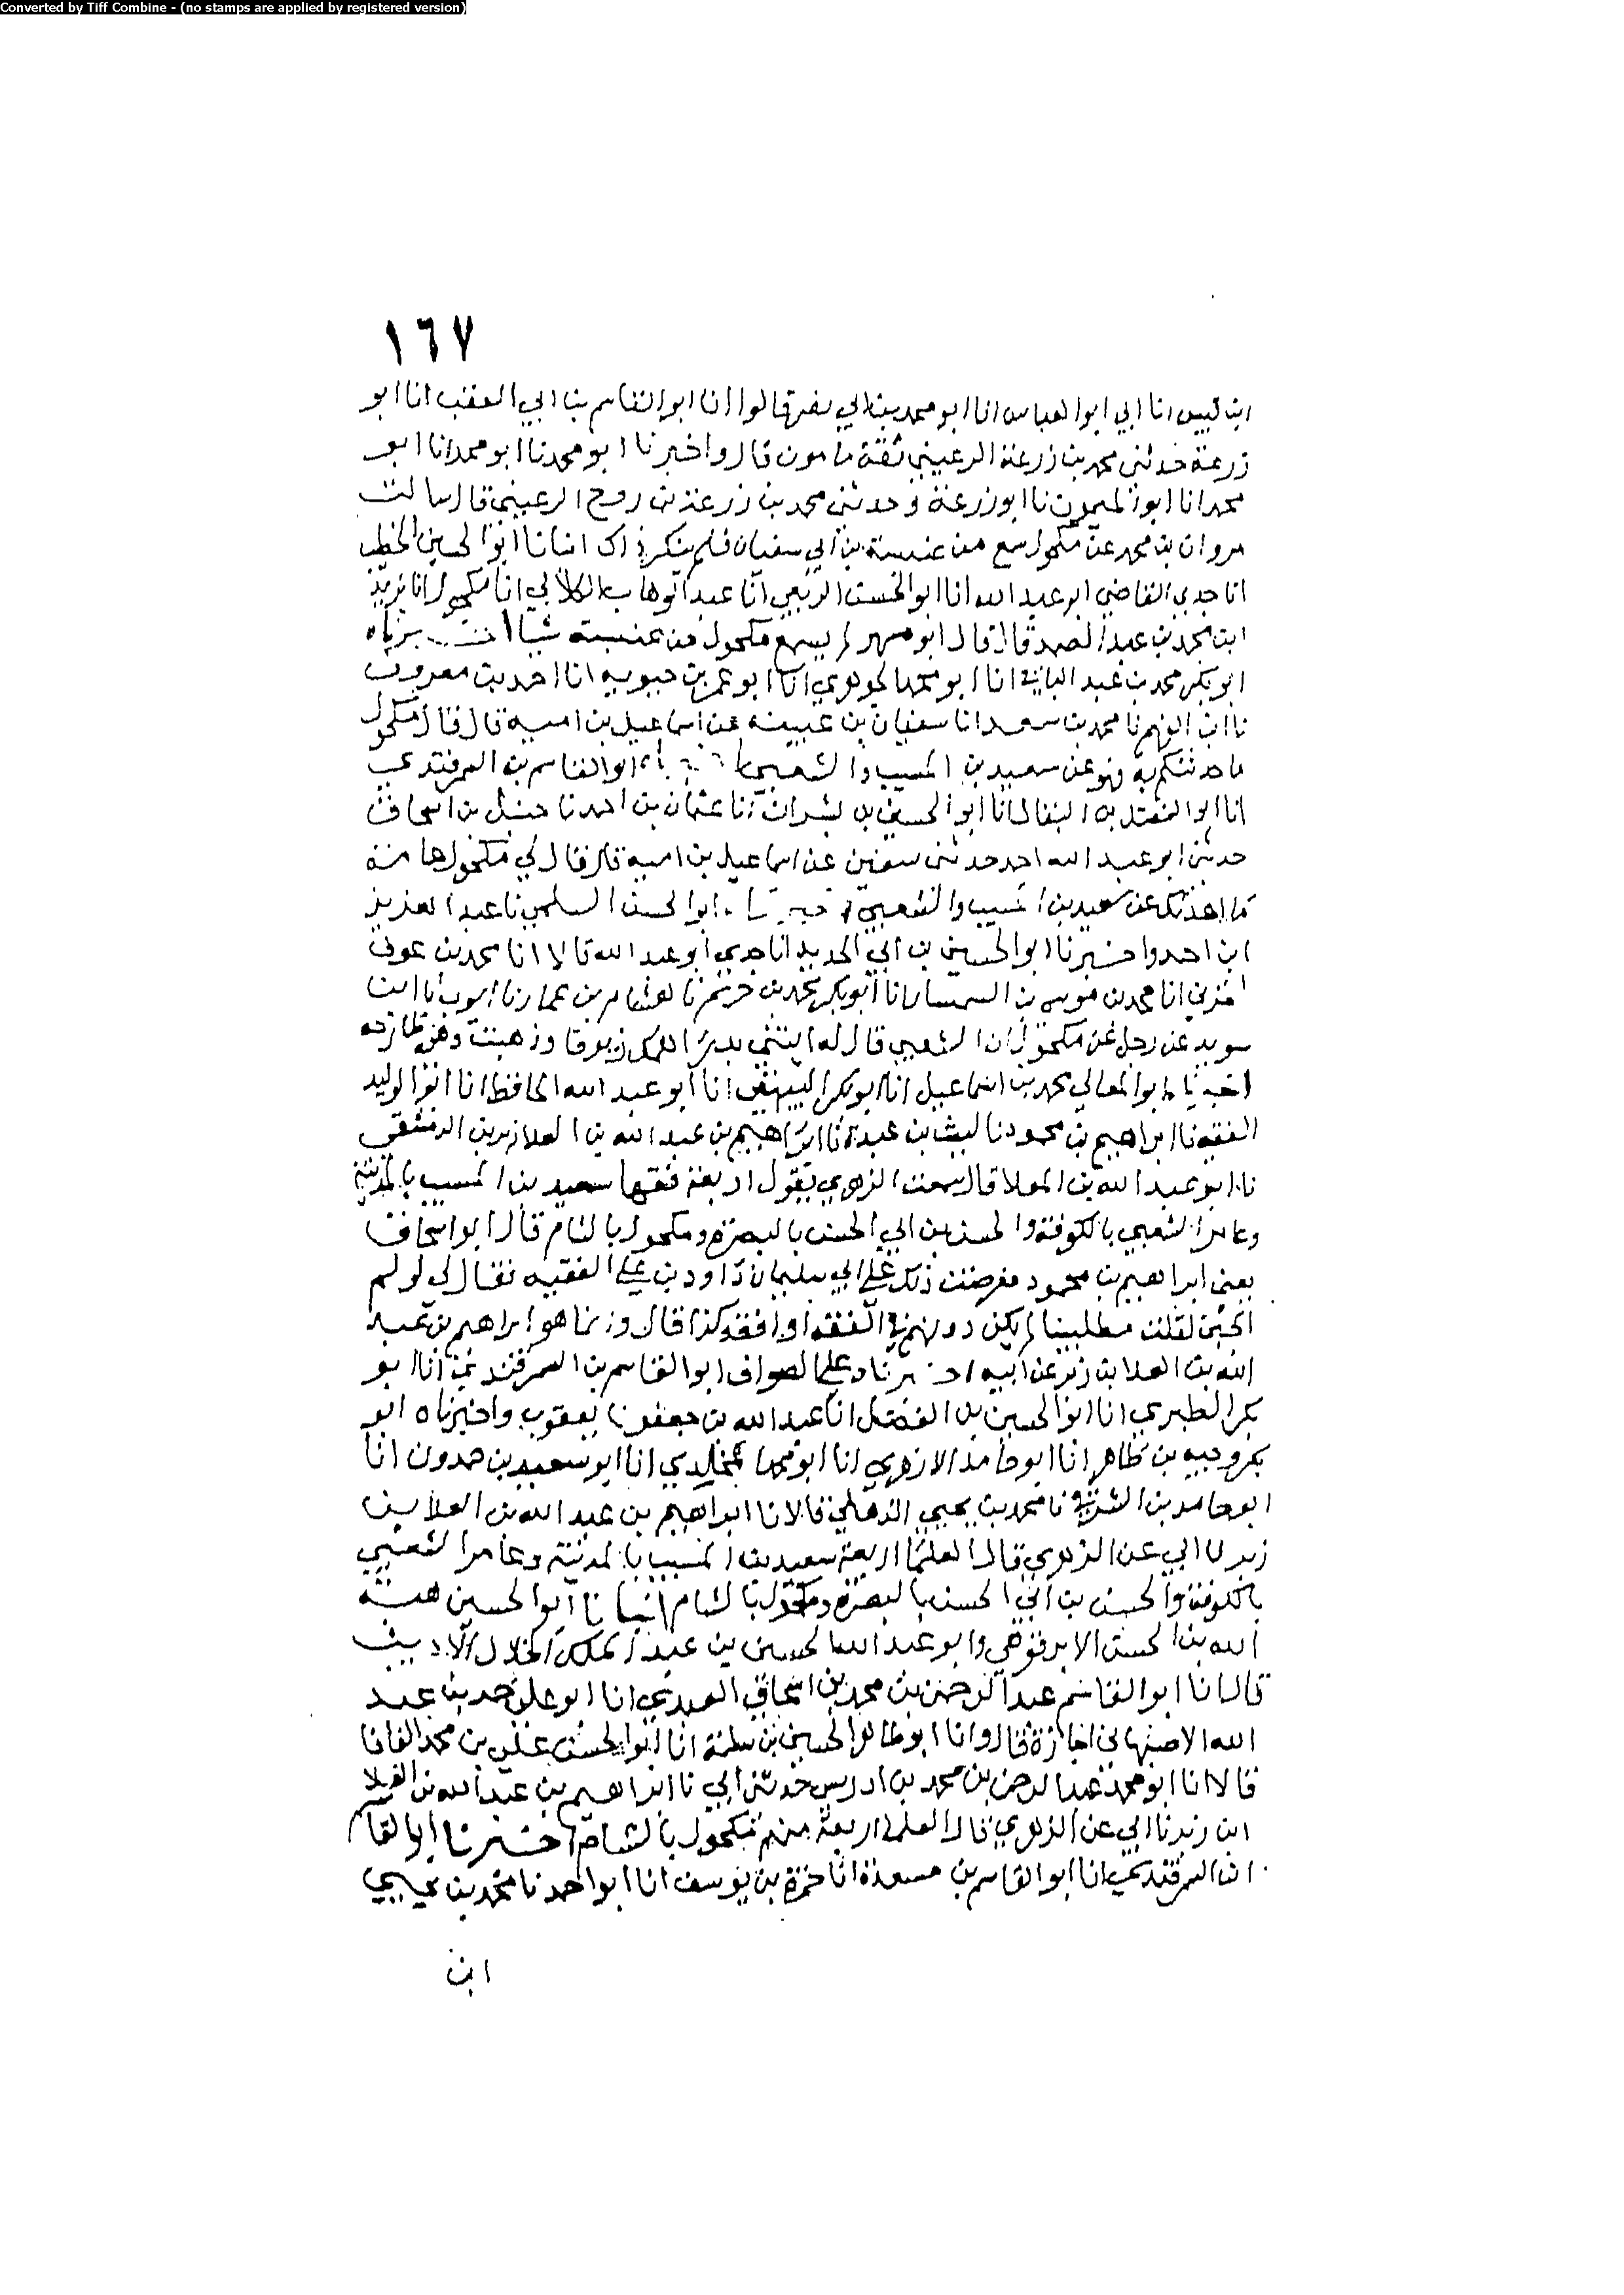 Converted by Tiff Combine - (no stamps are applied by registered version)
١٦٧
ابن قبيس انا ابي ابو العباس انا ابو محمد بن ابي نصر قالوا انا ابو القاسم بن ابي العقب انا ابو
زرعة حدثني محمد بن زرعة الرعيني ثقة مامون قال واخبرنا ابو محمد نا ابو محمد انا ابو
محمد انا ابو الميمون نا ابو زرعة وحدثني محمد بن زرعة بن روح الرعيني قال سالت
مروان بن محمد عن مكحول سمع من عنبسة بن ابي سفيان فلم ينكر ذاك انبانا ابو الحسين الخطيب
انا جدي القاضي ابو عبد الله انا ابو الحسن الربعي انا عبد الوهاب الكلابي انا مكحول نا يزيد
ابن محمد بن عبد الصمد قال قال ابو مسهر لم يسمع مكحول من عنبسة شيا اخبرناه
ابو بكر محمد بن عبد الباقي انا ابو محمد الجوهري انا ابو عمر بن حيويه انا احمد بن معروف
نا ابن الفهم نا محمد بن سعد انا سفيان بن عيينة عن اسماعيل بن امية قال قال مكحول
ما حدثتكم به فهو عن سعيد بن المسيب والشعبي ابو القاسم بن السمرقندي
انا ابو الفضل بن البقال انا ابو الحسين بن بشران انا عثمان بن احمد نا حنبل بن اسحاق
حدثني ابو عبد الله احمد حدثني سفين عن اسماعيل بن امية قال قال لي مكحول عامة
ما احدثك عن سعيد بن المسيب والشعبي ابو الحسن السلمي نا عبد العزيز
ابن احمد واخبرنا ابو الحسين بن ابي الحديد انا جدي ابو عبد الله قالا انا محمد بن عوف
المزني انا محمد بن موسى بن السمسار انا ابو بكر محمد بن خريم نا هشام بن عمار نا ايوب نا ابن
سويد عن رجل عن مكحول ان الشعبي قال له
اخبرنا ابو المعالي محمد بن اسماعيل انا ابو بكر البيهقي انا ابو عبد الله الحافظ انا ابو الوليد
الفقيه نا ابراهيم بن محمود نا ليث بن عبدة نا ابراهيم بن عبد الله بن العلا زبر بن الدمشقي
نا ابو عبد الله بن العلا قال سمعت الزهري يقول اربعة فقها سعيد بن المسيب بالمدينة
وعامر الشعبي بالكوفة والحسن بن ابي الحسن بالبصرة ومكحول بالشام قال ابو اسحاق
يعني ابراهيم بن محمود فعرضت ذلك على ابي سليمان داود بن علي الفقيه فقال لي لو لم
لقلت مطلبينا لم يكن دونهم في الفقه او افقه كذا قال وانما هو ابراهيم بن عبد
الله بن العلا بن زبر عن ابيه اخبرناه على الصواف ابو القاسم بن السمرقندي انا ابو
بكر الطبري انا ابو الحسين بن الفضل انا عبد الله بن جعفر نا يعقوب واخبرناه ابو
بكر وجيه بن طاهر انا ابو حامد الازهري انا ابو محمد المخلدي انا ابو سعيد بن حمدون انا
ابو حامد بن الشرقي نا محمد بن يحيى الذهلي قالا نا ابراهيم بن عبد الله بن العلا بن
زبر نا ابي عن الزهري قال العلما اربعة سعيد بن المسيب بالمدينة وعامر الشعبي
بالكوفة والحسن بن ابي الحسن بالبصرة ومكحول بالشام انبانا ابو الحسين هبة
الله بن الحسن الابرقوهي وابو عبد الله الحسين بن عبد الملك الخلال الاديب
قالا انا ابو القاسم عبد الرحمن بن محمد بن اسحاق العبدي انا ابو علي حمد بن عبد
الله الاصبهاني اجازة قال وانا ابو طاهر الحسين بن سلمة انا ابو الحسن علي بن محمد الفافا
قالا انا ابو محمد عبد الرحمن بن محمد بن ادريس حدثني ابي نا ابراهيم بن عبد الله بن العلا
ابن زبر نا ابي عن الزهري قال العلما اربعة منهم مكحول بالشام اخبرنا ابو القاسم
ابن السمرقندي انا ابو القاسم بن مسعدة انا حمزة بن يوسف انا ابو احمد نا محمد بن يحيى
ابن